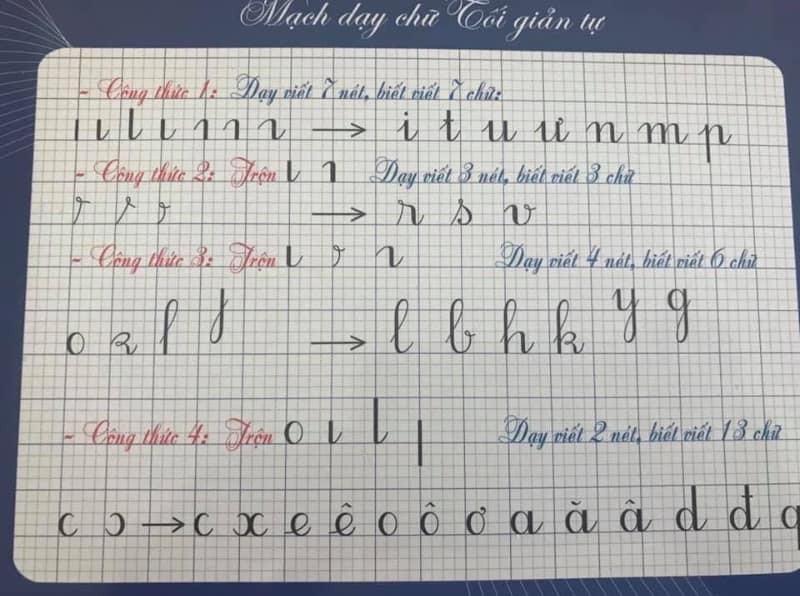 Mạch dạy chữ Tối giản tự
- Công thức 1: Dạy viết 7 nét, biết viết 7 chữ:
→ i t u ư n m p
- Công thức 2: Trộn Dạy viết 3 nét, biết viết 3 chữ
→ r s v
- Công thức 3: Trộn Dạy viết 4 nét, biết viết 6 chữ
→ l b h k y g
- Công thức 4: Trộn o Dạy viết 2 nét, biết viết 13 chữ
c ɔ → c x e ê o ô ơ a ă â d đ q